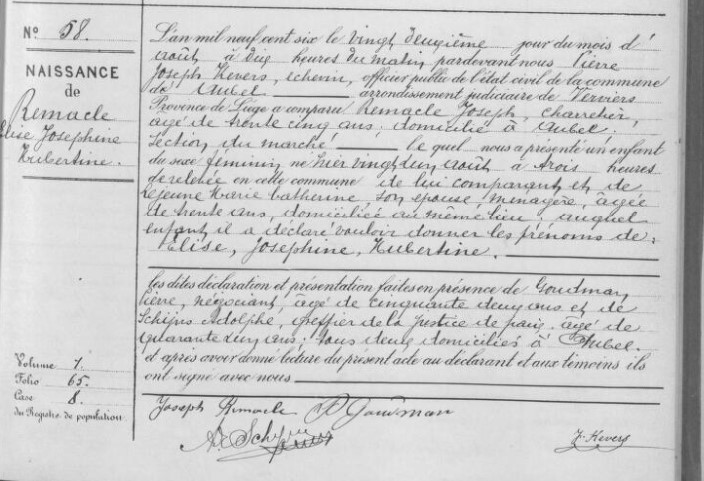 N° 58.
NAISSANCE
de
Remacle
Elise Josephine
Hubertine.
Volume 1.
Folio 65.
Case 8.
du Registre de population
L'an mil neuf cent six le vingt deuxième jour du mois d'
août à dix heures du matin, pardevant nous Pierre
Joseph Kevers, echevin, officier public de l'état civil de la commune
de Aubel arrondissement judiciaire de Verviers
Province de Liége a comparu Remacle Joseph, charretier,
agé de trente cinq ans, domicilié à Aubel,
section du marché le quel nous a présenté un enfant
du sexe féminin, né hier vingt un août à trois heures
de relevée en cette commune de lui comparant et de
Lejeune Marie Catherine son epouse, ménagère, âgée
de trente ans, domiciliée au même lieu, auquel
enfant il a déclaré vouloir donner les prénoms de:
Elise, Josephine, Hubertine.
les dites déclaration et présentation faites en présence de Goudman,
Pierre, négociant, âgé de cinquante deux ans et de
Schijns Adolphe, greffier de la Justice de paix, âgé de
quarante un ans; tous deux domiciliés à Aubel.
et après avoir donné lecture du present acte au déclarant et aux témoins ils
ont signé avec nous
Joseph Remacle P Goudman
A. Schijns
J. Kevers